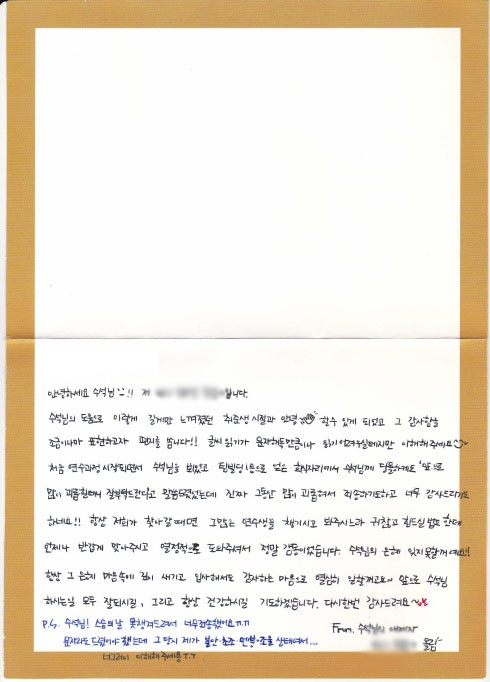 안녕하세요 수석님 !! 저 입니다.
수석님의 도움으로 이렇게 길게만 느껴졌던 취준생 시절과 안녕 할 수 있게 되었고 그 감사함을
조금이나마 표현하고자 편지를 씁니다!! 글씨 읽기가 읽기 어려우실테지만 이해해주세요
처음 연수과정 시작되면서 수석님을 뵈었고 팀빌딩 1등으로 넓은 회식자리에서 수석님께 앞으로
많이 괴롭힐테니 잘 부탁드린다고 말씀드렸었는데 진짜 그동안 많이 괴롭혀서 죄송하기도하고 너무 감사드리기도
하네요!! 항상 저희가 찾아갈 때면 그 많은 연수생을 챙기시고 봐주시느라 귀찮고 힘드실 법도 한데
언제나 반갑게 맞아주시고 열정적으로 도와주셔서 정말 감동이었습니다. 수석님의 은혜 잊지 못할꺼예요!!
항상 그 은혜 마음속에 새기고 입사해서도 감사하는 마음으로 열심히 일할꺼고요~ 앞으로 수석님
하시는일 모두 잘되시길, 그리고 항상 건강하시길 기도하겠습니다. 다시한번 감사드려요~
P.S. 수석님! 스승의날 못챙겨드려서 너무 죄송했어요ㅠㅠ
From. 수석님의 애제자
문자라도 드렸어야 했는데 그 당시 제가 불안·초조·민감·조울 상태여서...
올림
너그러이 이해해주세용 T.T